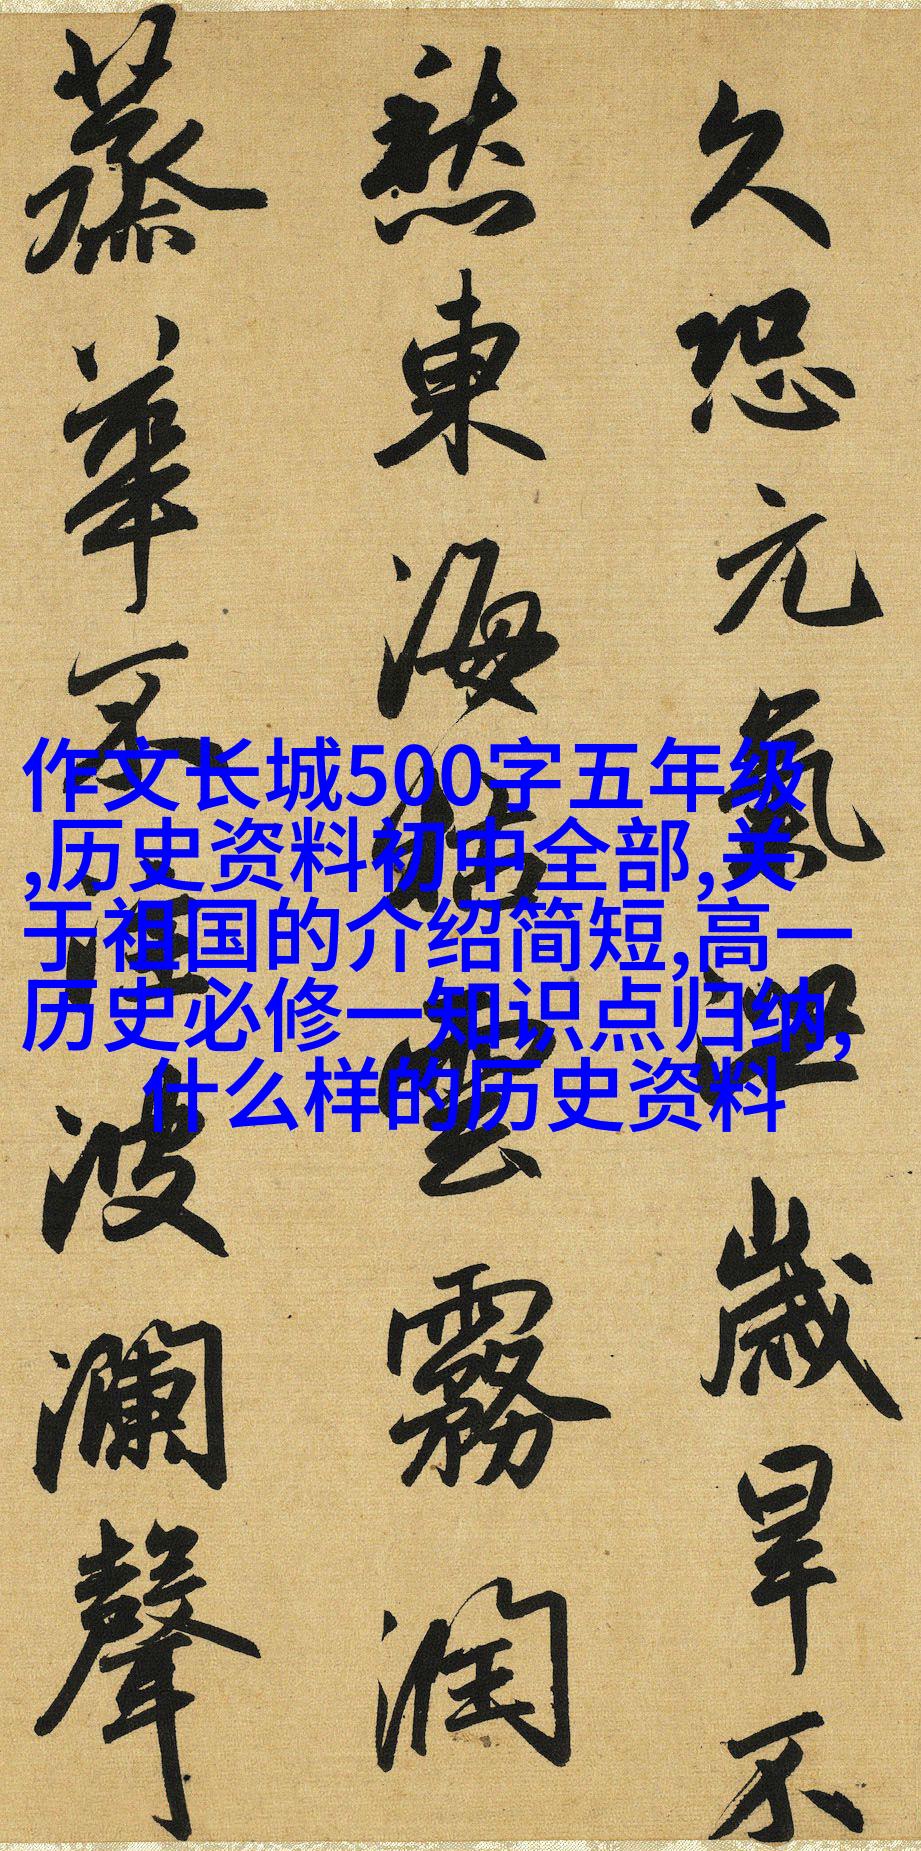 久恐元氣泄歲旱不
愁東海枯雲霧潤
蒸華不注波瀾聲
作文长城500字五年级
,历史资料初中全部,关
于祖国的介绍简短,高一
历史必修一知识点归纳,
什么样的历史资料